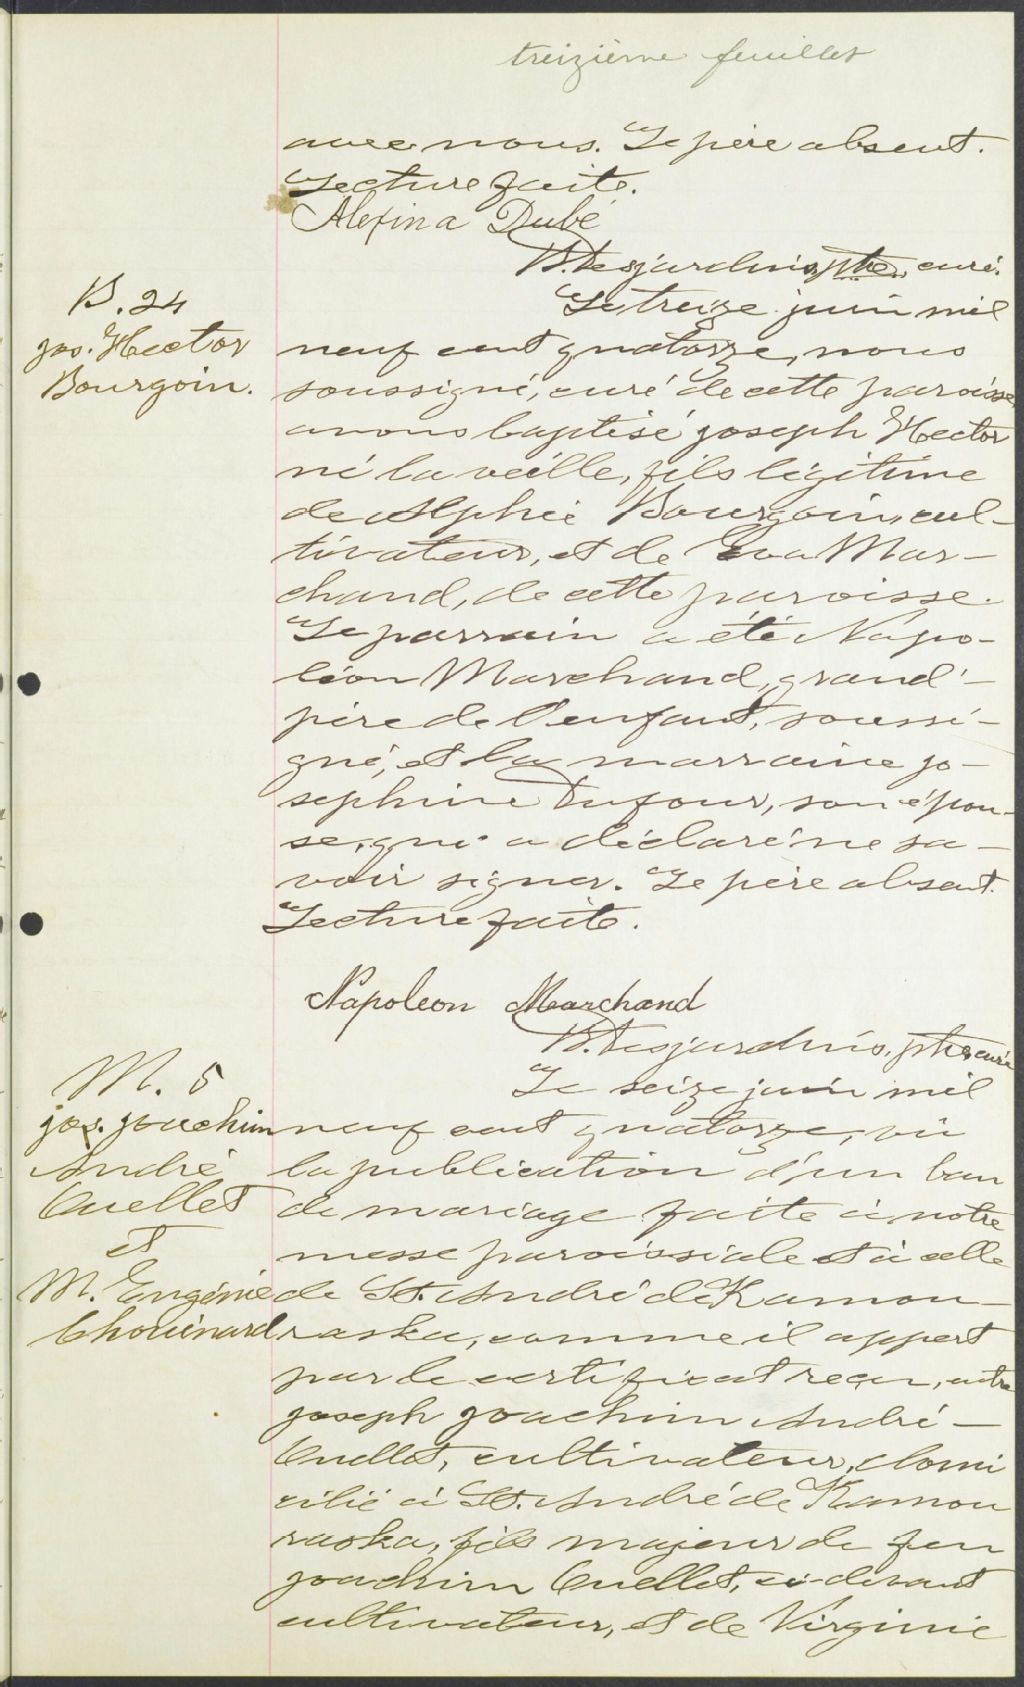 treizième feuillet
avec nous. Le père absent.
Lecture faite.
Alexina Dubé
B. Desjardins, ptre, curé.
B. 24
Jos. Hector
Bourgoin.
Le treize juin mil
neuf cent quatorze, nous
soussigné, curé de cette paroisse,
avons baptisé Joseph Hector
né la veille, fils légitime
de Alphée Bourgoin, cul-
tivateur, et de Eva Mar-
chand, de cette paroisse.
Le parrain a été Napo-
léon Marchand, grand'-
père de l'enfant, soussi-
gné, et la marraine Jo-
séphine Dufour, son épou-
se, qui a déclaré ne sa-
voir signer. Le père absent.
Lecture faite.
Napoleon Marchand
B. Desjardins, ptre, curé
M. 5
Jos. Joachim
André
Ouellet
et
M. Eugénie
Chouinard
Le seize juin mil
neuf cent quatorze, vu
la publication d'un ban
de mariage faite à notre
messe paroissiale et à celle
de St. André de Kamou-
raska, comme il appert
par le certificat reçu, entre
Joseph Joachim André-
Ouellet, cultivateur, domi
cilié à St. André de Kamou
raska, fils majeur de feu
Joachim Ouellet, ci-devant
cultivateur, et de Virginie